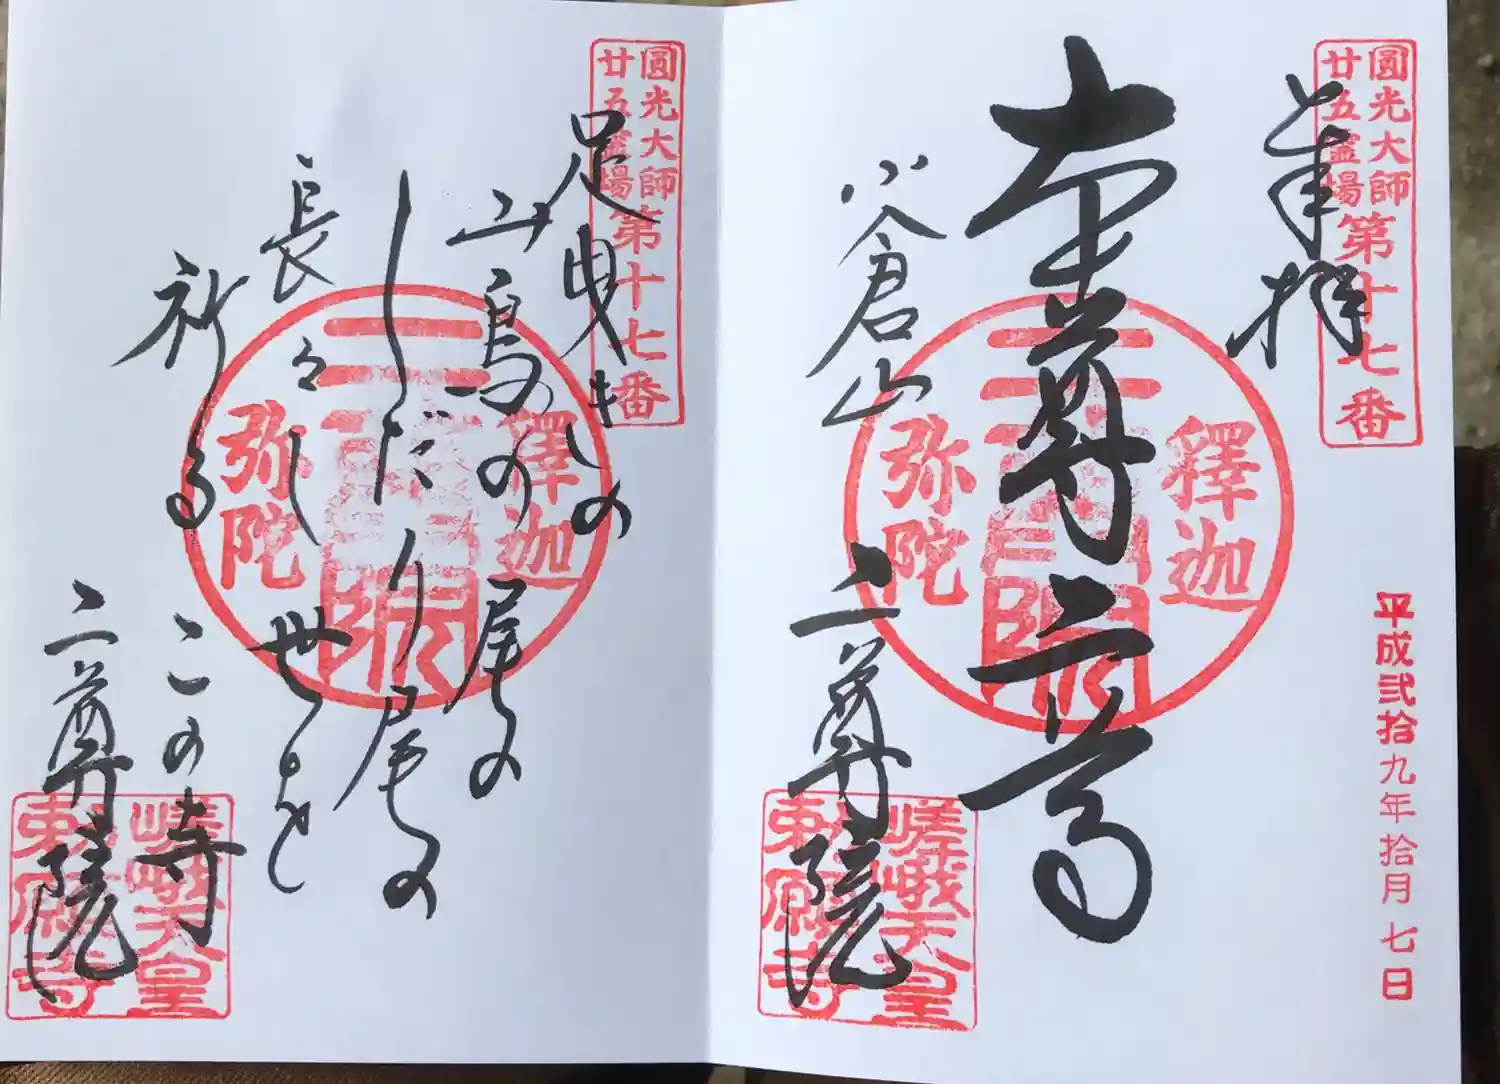 圓光大師
廿五霊場
第十七番
奉拝
本尊二尊
釋迦
弥陀
小倉山
二尊院
嵯峨天皇
勅願寺
平成弐拾九年拾月七日
圓光大師
廿五霊場
第十七番
足曳きの
山鳥の尾の
しだり尾の
長々し世を
祈る
この寺
二尊院
釋迦
弥陀
嵯峨天皇
勅願寺